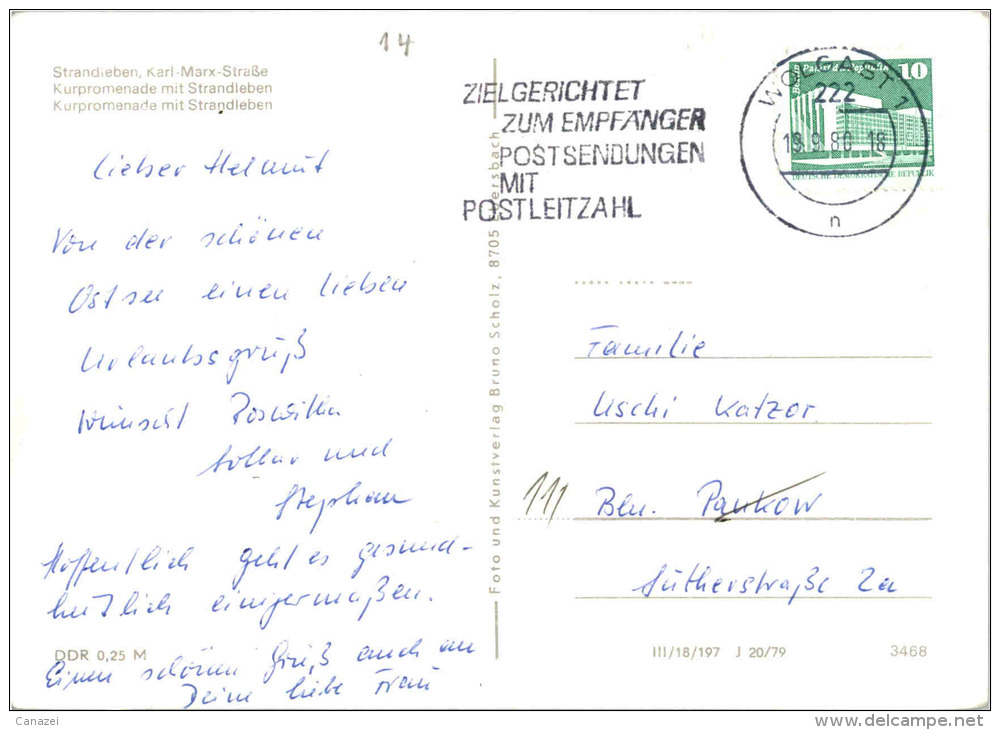 14
Strandleben, Karl-Marx-Straße
Kurpromenade mit Strandleben
Kurpromenade mit Strandleben
Lieber Helmut
Von der schönen
Ostsee einen lieben
Urlaubsgruß
wünscht Roswitha
Lothar und
Stephan
Hoffentlich geht es gesund-
heitlich einigermaßen.
Einen schönen Gruß auch an
Deine liebe Frau
DDR 0,25 M
Foto und Kunstverlag Bruno Scholz, 8705 Ebersbach
ZIELGERICHTET
ZUM EMPFÄNGER
POSTSENDUNGEN
MIT
POSTLEITZAHL
WOLGAST 1
222
19.9.86 18
n
10
DEUTSCHE DEMOKRATISCHE REPUBLIK
Familie
Uschi Katzor
111 Bln. Pankow
2a
III/18/197 J 20/79
3468
Canazei
www.delcampe.net